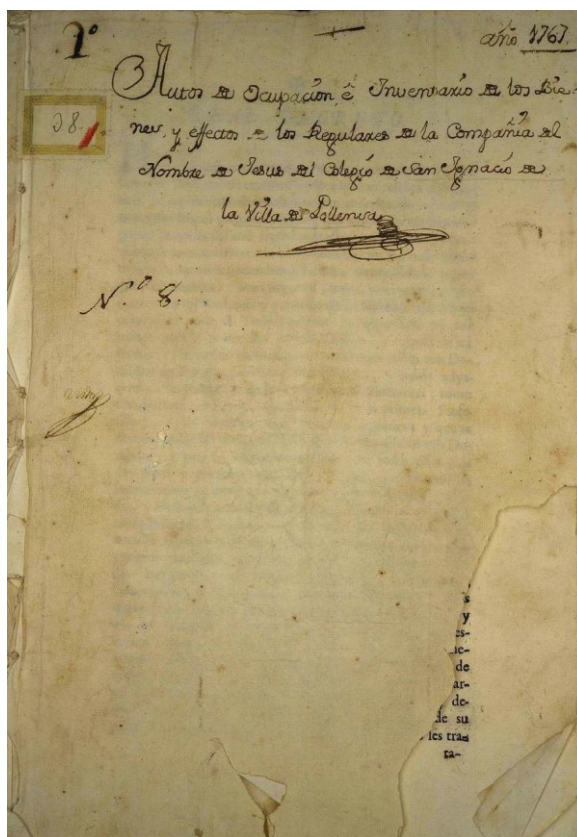 1º
año 1767.
38
Autos de Ocupación é Inventario de los Bie-
nes, y effectos de los Regulares de la Compañia del
Nombre de Jesus del Colegio de San Ignacio de
la Villa de Pollensa
N.º 8.
s
y
es-
de
ar-
de-
de su
les tras
ta-